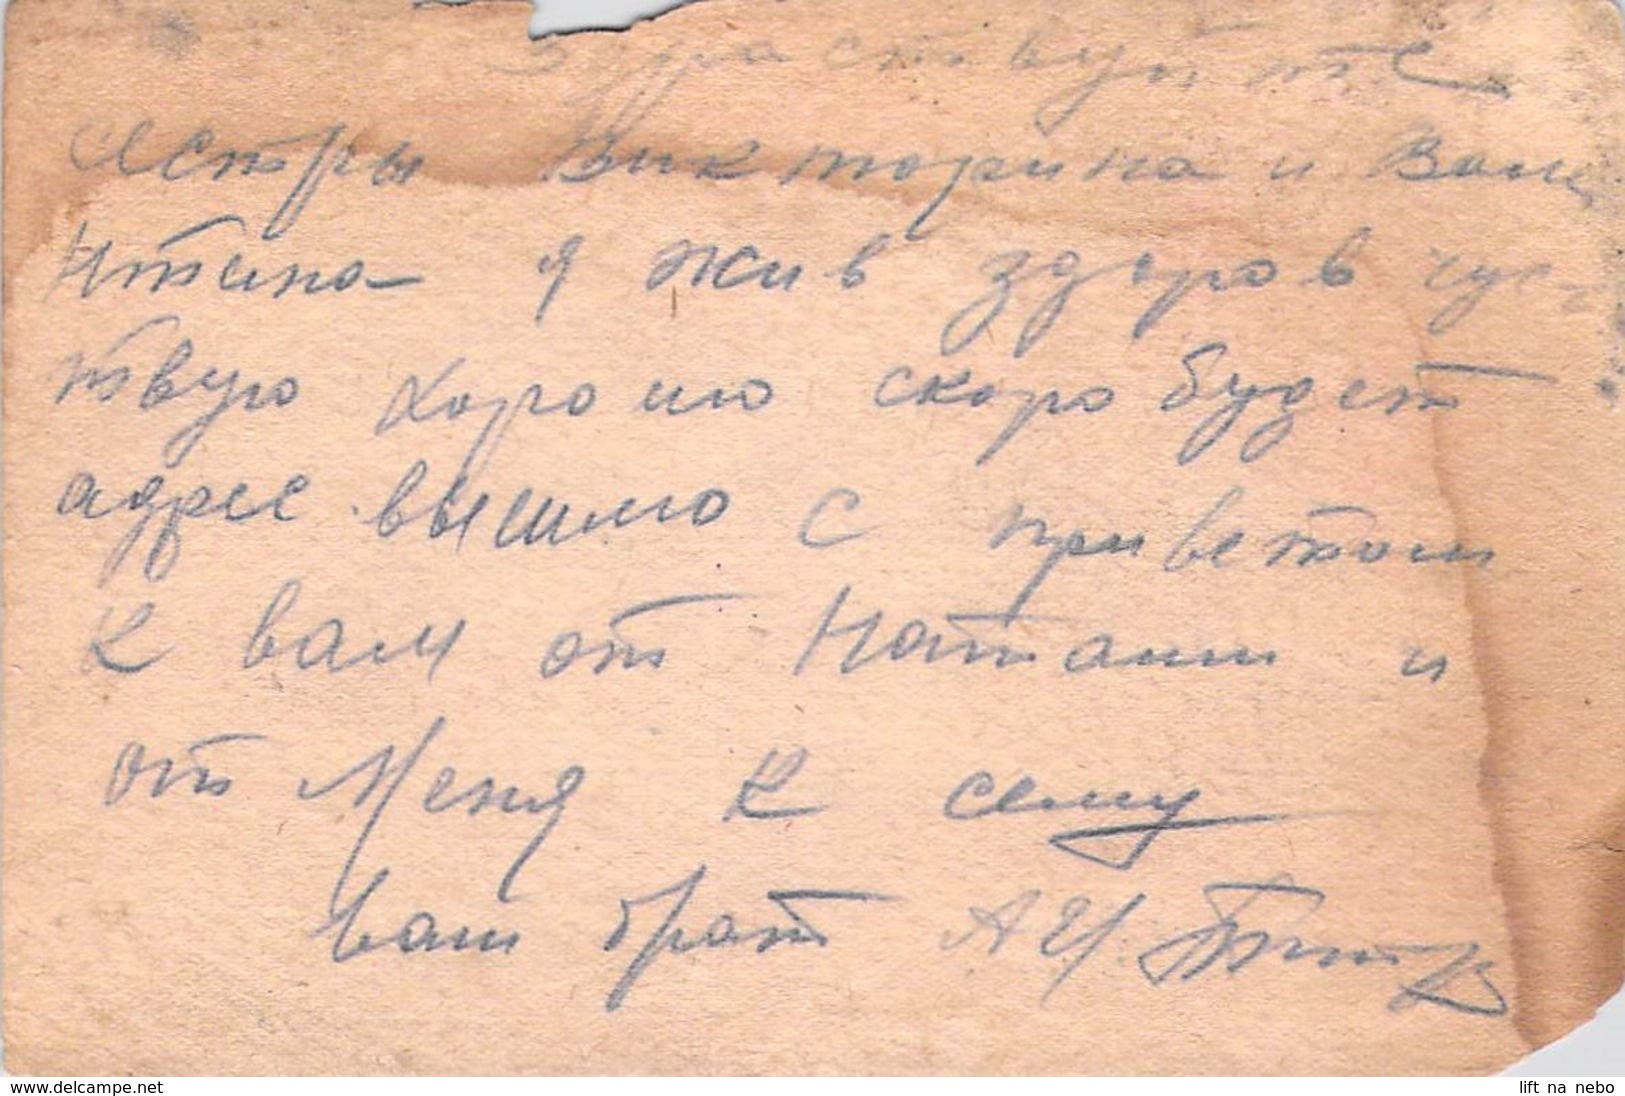 Здраствуйте
сестры Викторина и Вале
нтина я жив здоров чус
твую хорошо скоро будет
адрес вышлю с приветом
к вам от Наташи и
от меня к сему
ваш брат А И.
www.delcampe.net
lift na nebo